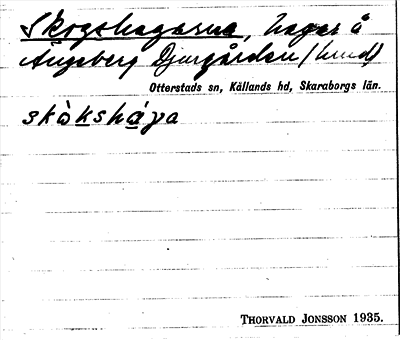 Skogshagarna, hagar å
Ängsberg Djurgården (lund)
Otterstads sn, Kållands hd, Skaraborgs län.
skòkshága
THORVALD JONSSON 1935.